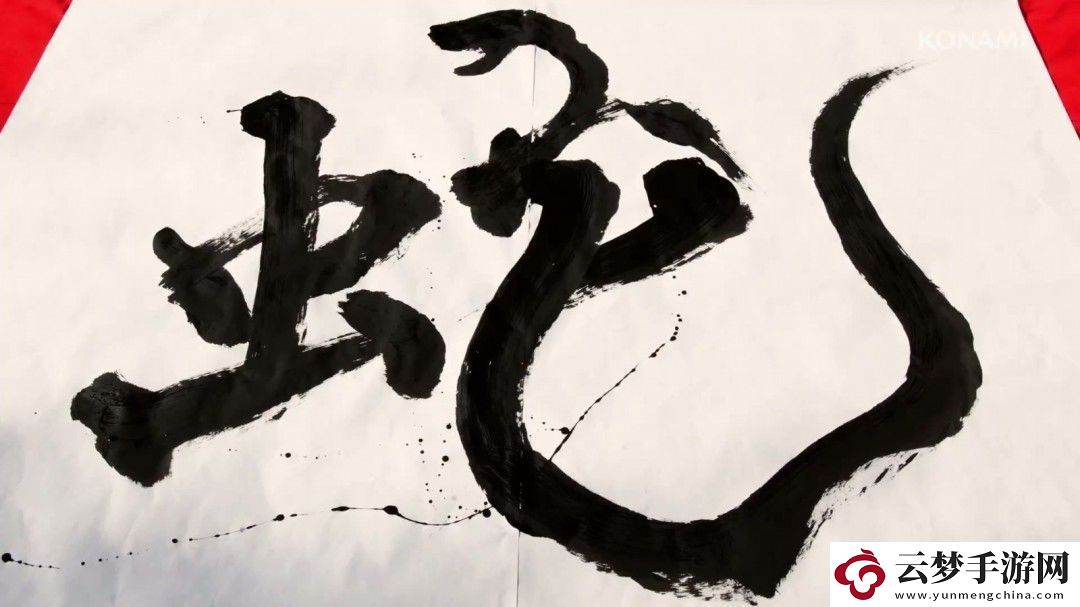 KONAMI
蛇
云梦手游网
www.yunmengchina.com